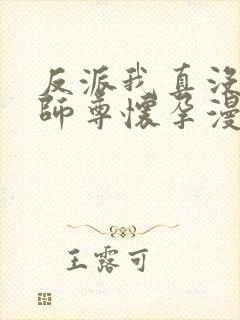 反派我真没
师尊怀孕漫
王露可